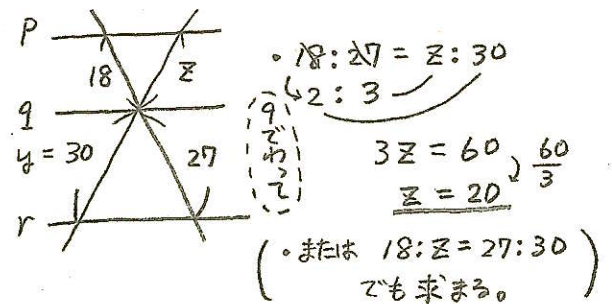 P
18
z
q
y = 30
27
r
・18:27 = z:30
2:3
9でわって
3z = 60
60/3
z = 20
(・または 18:z = 27:30
でも求まる。)